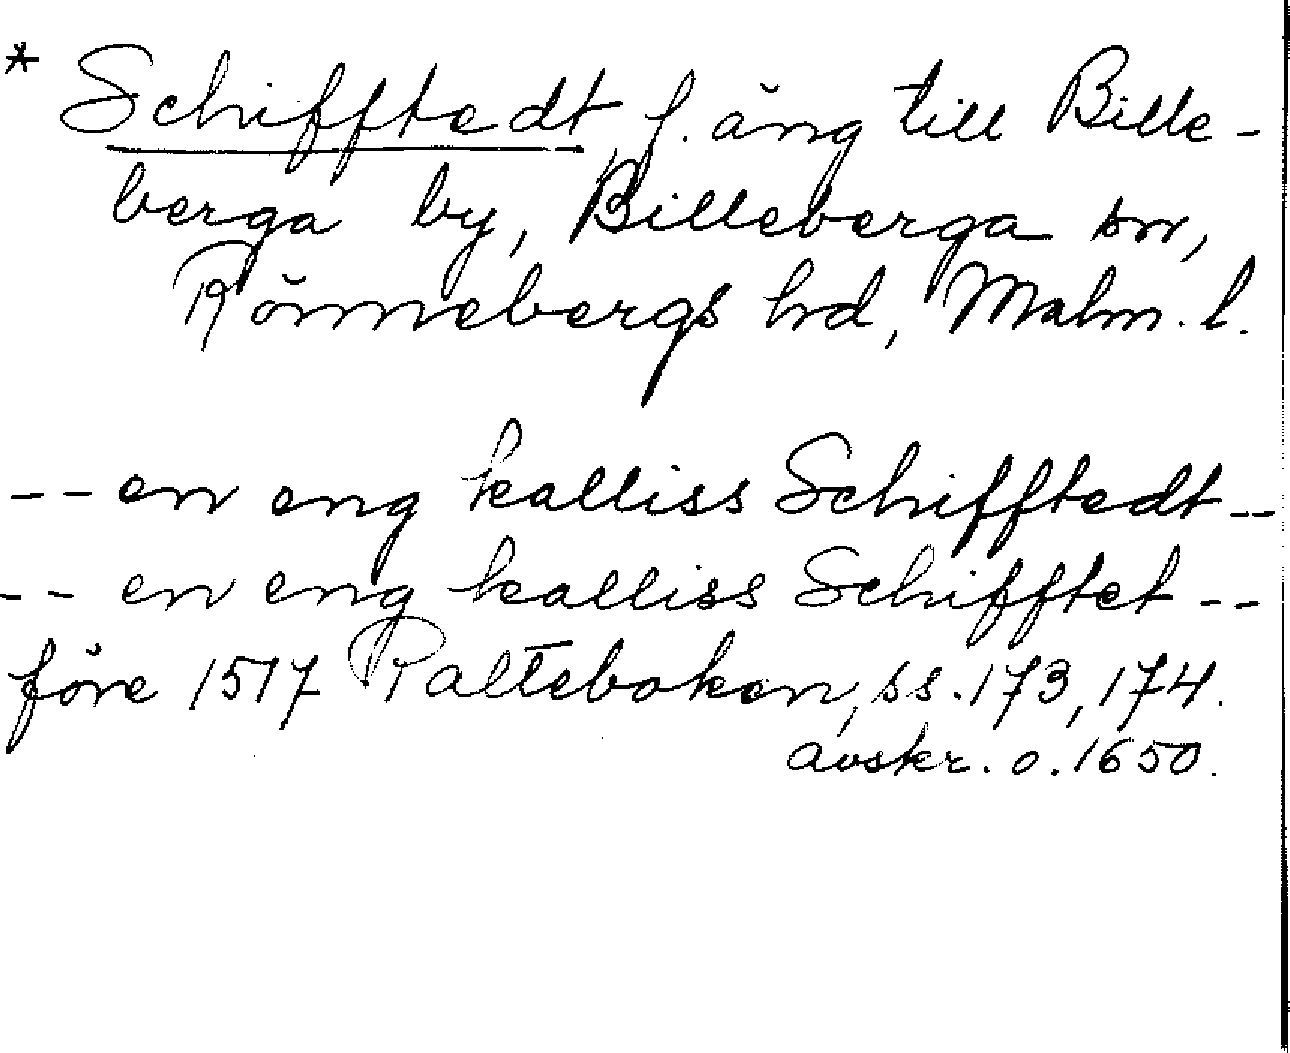 * Schifftedt, f. äng till Bille-
berga by, Billeberga sn,
Rönnebergs hd, Malm. l.
-- en eng kalliss Schifftedt --
-- en eng kalliss Schifftet --
före 1517 Palteboken, ss. 173, 174.
avskr. o. 1650.